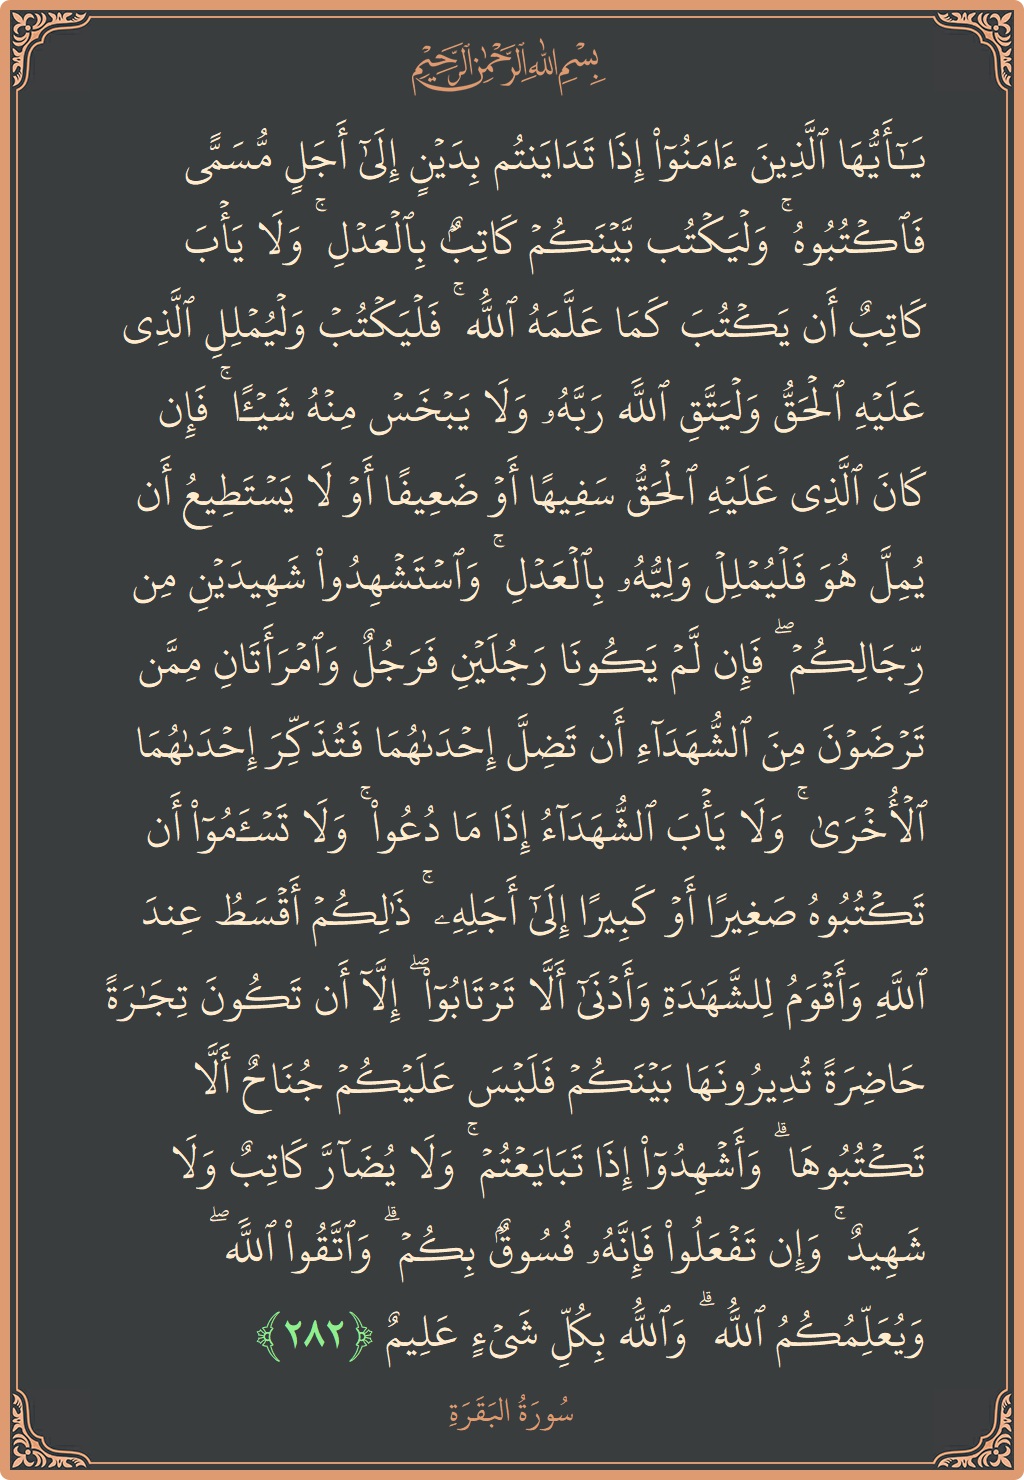 بِسْمِ اللَّهِ الرَّحْمَٰنِ الرَّحِيمِ
يَـٰٓأَيُّهَا ٱلَّذِينَ ءَامَنُوٓا۟ إِذَا تَدَايَنتُم بِدَيْنٍ إِلَىٰٓ أَجَلٍ مُّسَمًّى
فَٱكْتُبُوهُ ۚ وَلْيَكْتُب بَّيْنَكُمْ كَاتِبٌۢ بِٱلْعَدْلِ ۚ وَلَا يَأْبَ
كَاتِبٌ أَن يَكْتُبَ كَمَا عَلَّمَهُ ٱللَّهُ ۚ فَلْيَكْتُبْ وَلْيُمْلِلِ ٱلَّذِى
عَلَيْهِ ٱلْحَقُّ وَلْيَتَّقِ ٱللَّهَ رَبَّهُۥ وَلَا يَبْخَسْ مِنْهُ شَيْـًٔا ۚ فَإِن
كَانَ ٱلَّذِى عَلَيْهِ ٱلْحَقُّ سَفِيهًا أَوْ ضَعِيفًا أَوْ لَا يَسْتَطِيعُ أَن
يُمِلَّ هُوَ فَلْيُمْلِلْ وَلِيُّهُۥ بِٱلْعَدْلِ ۚ وَٱسْتَشْهِدُوا۟ شَهِيدَيْنِ مِن
رِّجَالِكُمْ ۖ فَإِن لَّمْ يَكُونَا رَجُلَيْنِ فَرَجُلٌ وَٱمْرَأَتَانِ مِمَّن
تَرْضَوْنَ مِنَ ٱلشُّهَدَآءِ أَن تَضِلَّ إِحْدَىٰهُمَا فَتُذَكِّرَ إِحْدَىٰهُمَا
ٱلْأُخْرَىٰ ۚ وَلَا يَأْبَ ٱلشُّهَدَآءُ إِذَا مَا دُعُوا۟ ۚ وَلَا تَسْـَٔمُوٓا۟ أَن
تَكْتُبُوهُ صَغِيرًا أَوْ كَبِيرًا إِلَىٰٓ أَجَلِهِۦ ۚ ذَٰلِكُمْ أَقْسَطُ عِندَ
ٱللَّهِ وَأَقْوَمُ لِلشَّهَـٰدَةِ وَأَدْنَىٰٓ أَلَّا تَرْتَابُوٓا۟ ۖ إِلَّآ أَن تَكُونَ تِجَـٰرَةً
حَاضِرَةً تُدِيرُونَهَا بَيْنَكُمْ فَلَيْسَ عَلَيْكُمْ جُنَاحٌ أَلَّا
تَكْتُبُوهَا ۗ وَأَشْهِدُوٓا۟ إِذَا تَبَايَعْتُمْ ۚ وَلَا يُضَآرَّ كَاتِبٌ وَلَا
شَهِيدٌ ۚ وَإِن تَفْعَلُوا۟ فَإِنَّهُۥ فُسُوقٌۢ بِكُمْ ۗ وَٱتَّقُوا۟ ٱللَّهَ ۖ
وَيُعَلِّمُكُمُ ٱللَّهُ ۗ وَٱللَّهُ بِكُلِّ شَىْءٍ عَلِيمٌ ﴿٢٨٢﴾
سُورَةُ البَقَرَةِ